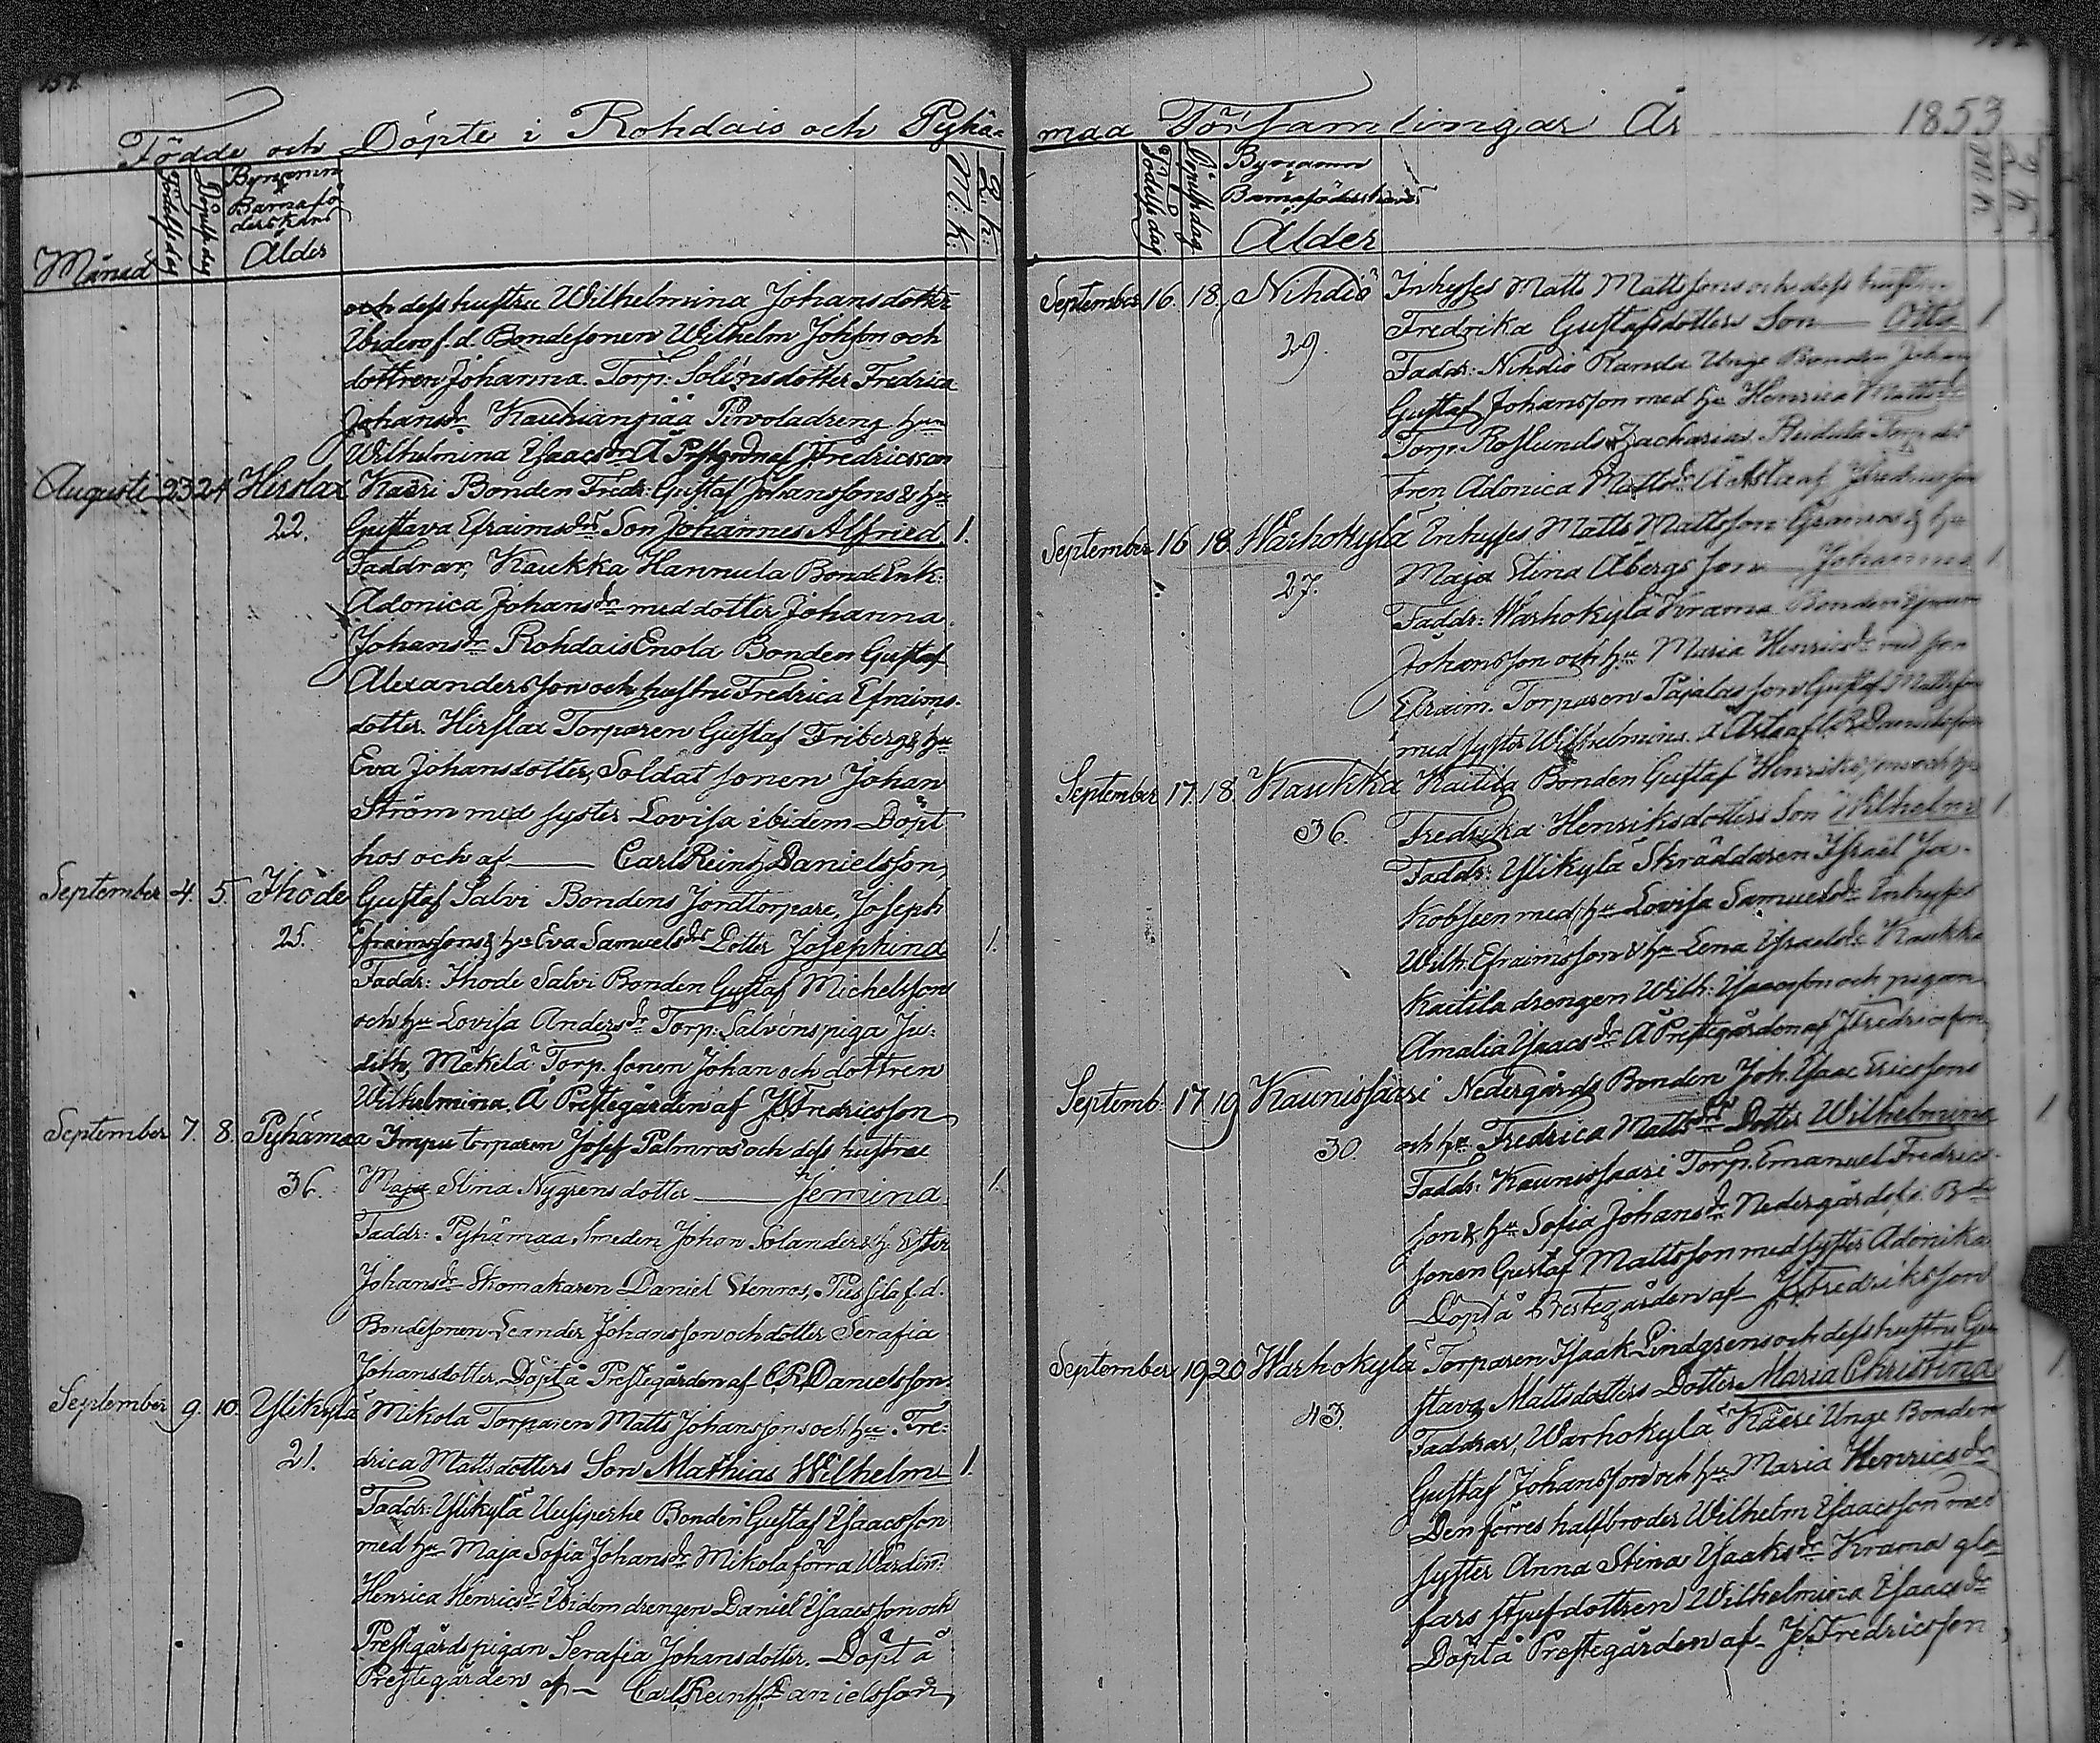 Födde och Döpte i Rohdais och Pyhä-
Månad Födelsedag Döpelsedag Bynamn Barnaföderskans Ålder M.k. Q.k.
och dess hustru Wilhelmina Johansdotter
Ibidem f.d. Bondesonen Wilhelm Johsson och
dottren Johanna. Torp: Solénsdotter Fredrica
Johansdr Kauhianpää Pirvoladreng hu
Wilhelmina Isaacsdr Å Prestgården af J Fredricsson
Augusti 23 24 Hirslax Kaéri Bonden Fredr: Gustaf Johanssons & hu
22. Gustava Efraimsdrs Son Johannes Alfried 1.
Faddrar, Kaukka Hannula Bonde Enk:
Adonica Johansdr med dotter Johanna
Johansdr Rohdais Enola Bonden Gustaf
Alexandersson och hustru Fredrica Efraims-
dotter. Hirslax Torparen Gustaf Friberg & hu
Eva Johansdotter, Soldat sonen Johan
Ström med syster Lovisa ibidem Döpt
hos och af Carl Reinh Danielsson
September 4. 5. Ihode Gustaf Salvi Bondens Jordtorpare, Joseph
25. Efraimssons & hu Eva Samuelsdrs Dotter Josephina 1.
Faddr: Ihode Salvi Bonden Gustaf Michelsson
och hu Lovisa Andersdr Torp: Salvéns piga Ju-
dith, Mäkelä Torp. sonen Johan och dottren
Wilhelmina. Å Prestegården af J Fredricsson
September 7. 8. Pyhämaa Impu torparen Josef Palmros och dess hustru
36. Maja Stina Nygrens dotter Jemina 1.
Faddr: Pyhämaa, Smeden Johan Solander & h: Ester
Johansdr Skomakaren Daniel Stenros, f.d.
Bondesonen Leander Johansson och dotter Serafia
Johansdotter. Döpt å Prestegården af C.R. Danielsson
September 9. 10. Ylikylä Mikola Torparen Matts Johanssons och hu Fre-
21. drica Mattsdotters Son Mathias Wilhelm 1.
Faddr: Ylikylä Uusiperhe Bonden Gustaf Isaacsson
med hu Maja Sofia Johansdr Mikola förra Wärdin:
Henrica Henricsdr Ibidem drengen Daniel Isaacsson och
Prestgårds pigan Serafia Johansdotter. Döpt å
Prestegården af Carl Reinh Danielsson
maa Församlingar År 1853
Födelsedag Döpelsedag Bynamn Barnaföderskans Ålder M.k. Q.k.
September 16. 18. Nihdiö Inhyses Matts Mattssons och dess hustru
29. Fredrika Gustafsdotters Son Otto 1
Faddr: Nihdiö Randa Unge Bonden Johan
Gustaf Johansson med hu Henrica Mattsdr
Torp. Roslunds Zacharias Torp dot
tren Adonica Mattsdr af J Fredricsson
September 16 18 Warhokylä Inhyses Matts Mattsson & hu
27. Maja Stina Åbergs Son Johannes 1
Faddr: Warhokylä Krama Bonden
Johansson och hu Maria Henricsdr med son
Efraim. Torparen Pajalas son Gustaf Mattsson
med syster Wilhelmina. af C.R. Danielsson
September 17. 18. Kaukka Kaitila Bonden Gustaf Henrikssons och hu
36. Fredrika Henriksdotters Son Wilhelm 1.
Faddr: Ylikylä Skräddaren Israel Ja-
kobsson med hu Lovisa Samuelsdr Inhyses
Wilh: Efraimsson & hu Lena Israelsdr Kaukka
Kaitila drengen Wilh: Isaacsson och pigan
Amalia Isaacsdr Å Prestegården af J Fredricsson
Septemb: 17 19 Kaunissaari Nedergårds Bonden Joh. Isaac Ericssons
30. och hu Fredrica Mattsdrs Dotter Wilhelmina 1
Faddr: Kaunissaari Torp. Emanuel Fredrics-
son & hu Sofia Johansdr Nedergårds f.d. Bde
sonen Gustaf Mattsson med syster Adonika
Döpt å Prestegården af J Fredriksson
September 19 20 Warhokylä Torparen Isaak Lindgrens och dess hustru Gu-
43. stava Mattsdotters Dotter Maria Christina 1
Faddrar, Warhokylä Kaéri Unge Bonden
Gustaf Johansson och hu Maria Henricsdr
Den förres halfbroder Wilhelm Isaacsson med
syster Anna Stina Isaaksdr Krama gla-
fars styfdottren Wilhelmina Isaacsdr
Döpt å Prestegården af J Fredricsson